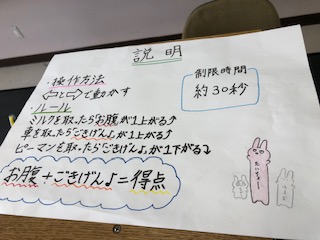 説明
・操作方法
⇦と⇨で動かす
・ルール
ミルクを取ったらお腹が1上がる↑
車を取ったらごきげん♪が1上がる↑
ピーマンを取ったらごきげん♪が1下がる↓
お腹+ごきげん♪=得点
制限時間
約30秒